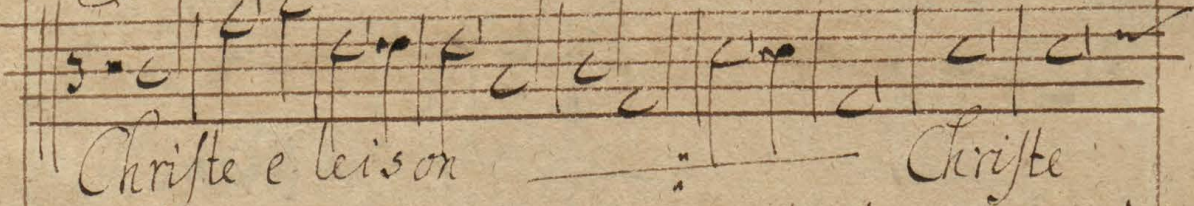 3
Chriſte e leison ⁒ Chriſte